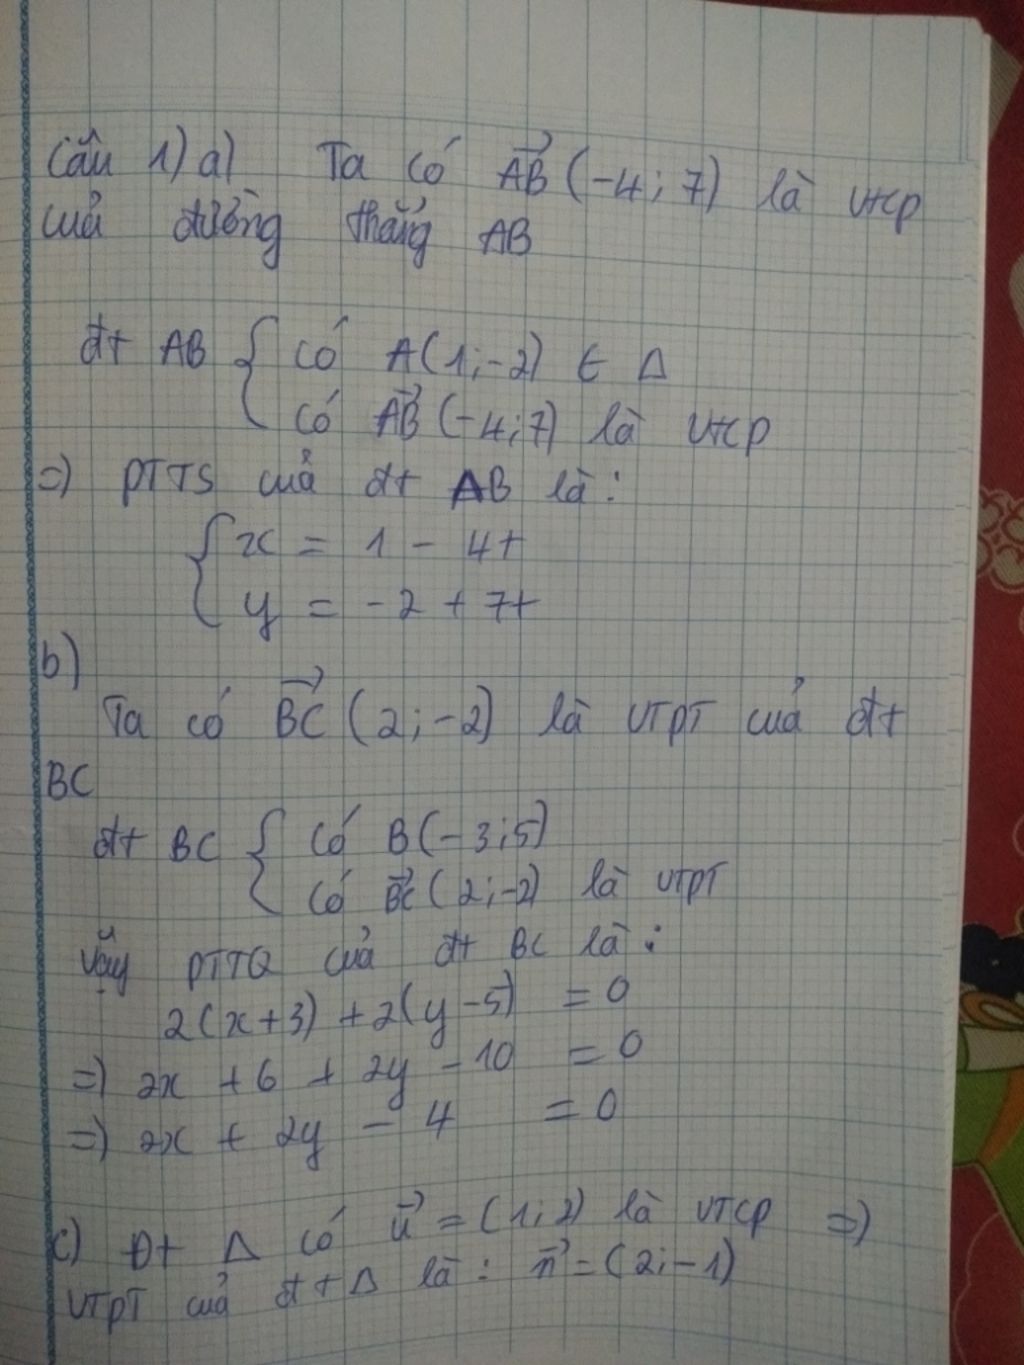 Câu 1) a) Ta có AB (-4; 7) là vtcp
của đường thẳng AB
đt AB { có A(1;-2) ∈ Δ
có AB (-4;7) là vtcp
=) PTTS của đt AB là:
{ x = 1 - 4t
y = -2 + 7t
b)
Ta có BC (2;-2) là VTPT của đt
BC
đt BC { có B(-3;5)
có BC (2;-2) là VTPT
Vậy PTTQ của đt BC là:
2(x+3) +2(y-5) = 0
=) 2x + 6 + 2y - 10 = 0
=) 2x + 2y - 4 = 0
c) Đt Δ có u = (1;2) là VTCP =)
VTPT của đt Δ là: n = (2;-1)